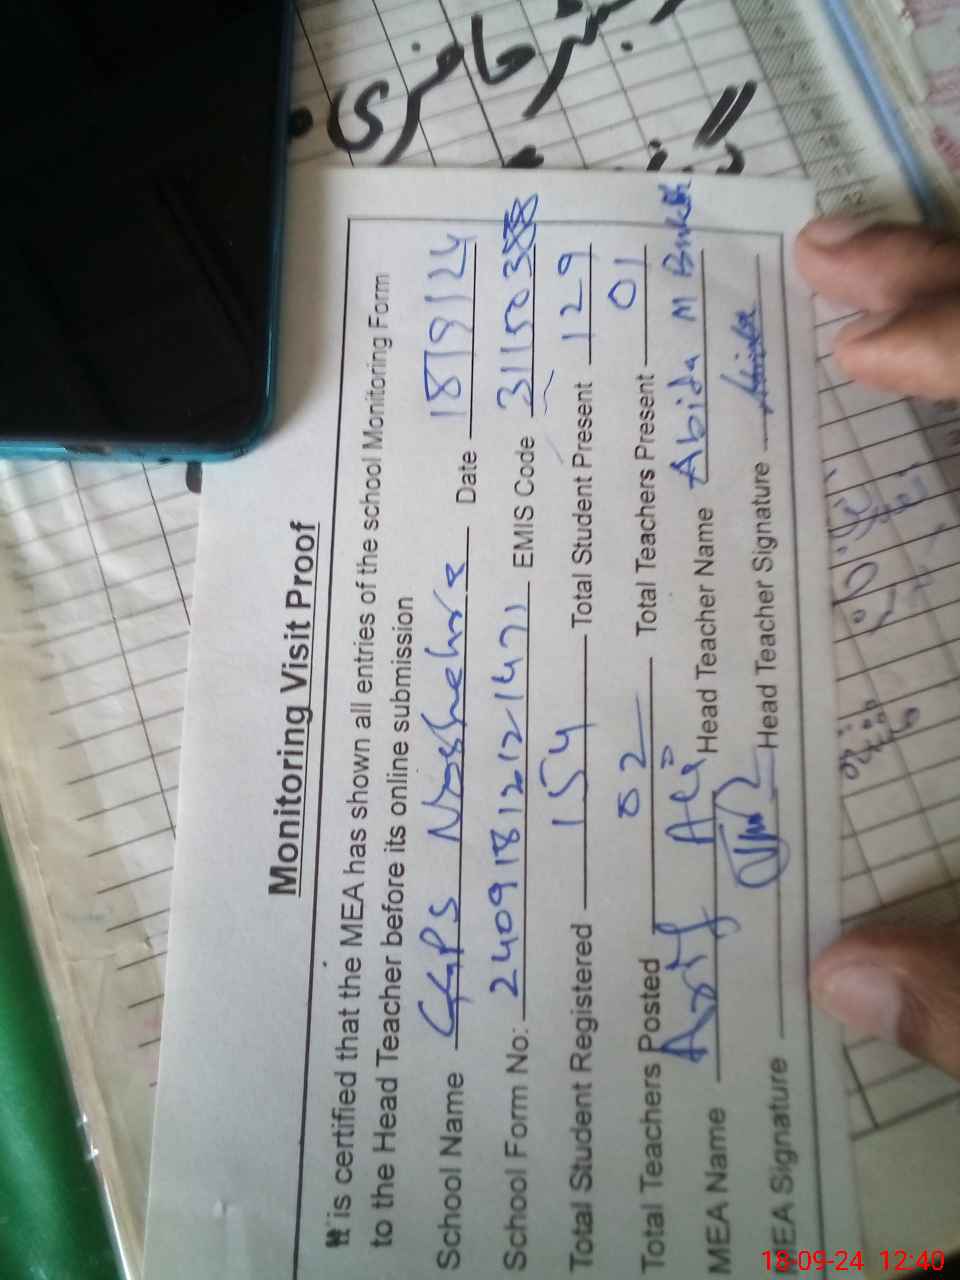 Monitoring Visit Proof
It is certified that the MEA has shown all entries of the school Monitoring Form
to the Head Teacher before its online submission
School Name GGPS Noshehra Date 18/9/24
School Form No: 240918121471 EMIS Code 3115038
Total Student Registered 154 Total Student Present 129
Total Teachers Posted 02 Total Teachers Present 01
MEA Name Arif Ali Head Teacher Name Abida M
MEA Signature Head Teacher Signature Abida
18-09-24 12:40